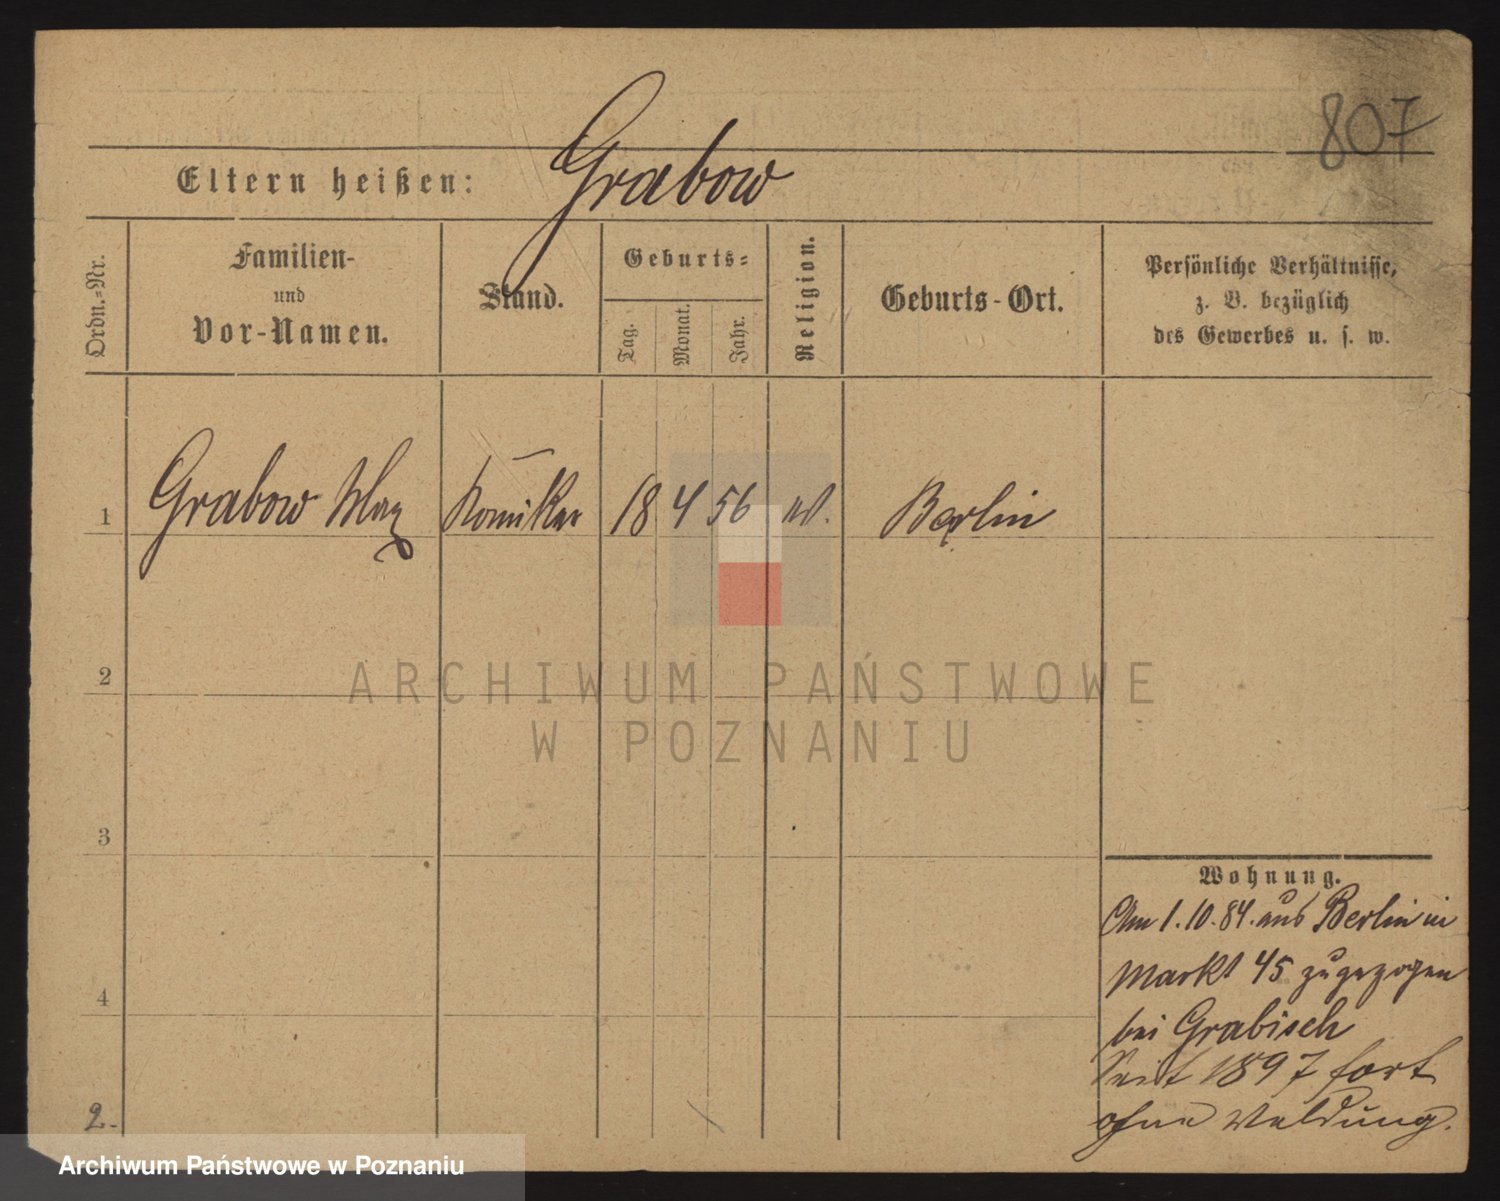 807
Eltern heißen: Grabow
Ordn.-Nr.
Familien-
und
Vor-Namen.
Stand.
Geburts-
Tag.
Monat.
Jahr.
Religion.
Geburts-Ort.
Persönliche Verhältnisse,
z. B. bezüglich
des Gewerbes u. s. w.
1 Grabow Max Komiker 18 4 56 Berlin
2
3
4
ARCHIWUM PAŃSTWOWE
W POZNANIU
Wohnung.
Am 1. 10. 84. aus Berlin in
Markt 45 zugezogen
bei Grabisch
Seit 1897 fort
ohne Meldung.
2.
Archiwum Państwowe w Poznaniu